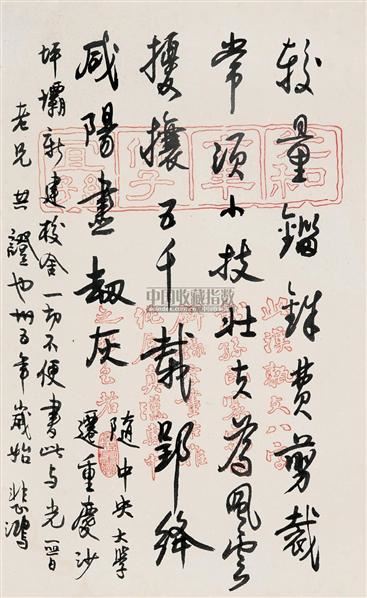 較量錙銖費剪裁
常須小技壯夫為風雲
擾攘五千載郢絳
咸陽盡劫灰
隨中央大學
遷重慶沙
坪壩新建校舍一切不便書此与光
老兄共證也卅五年歲始悲鴻
中国收藏指数